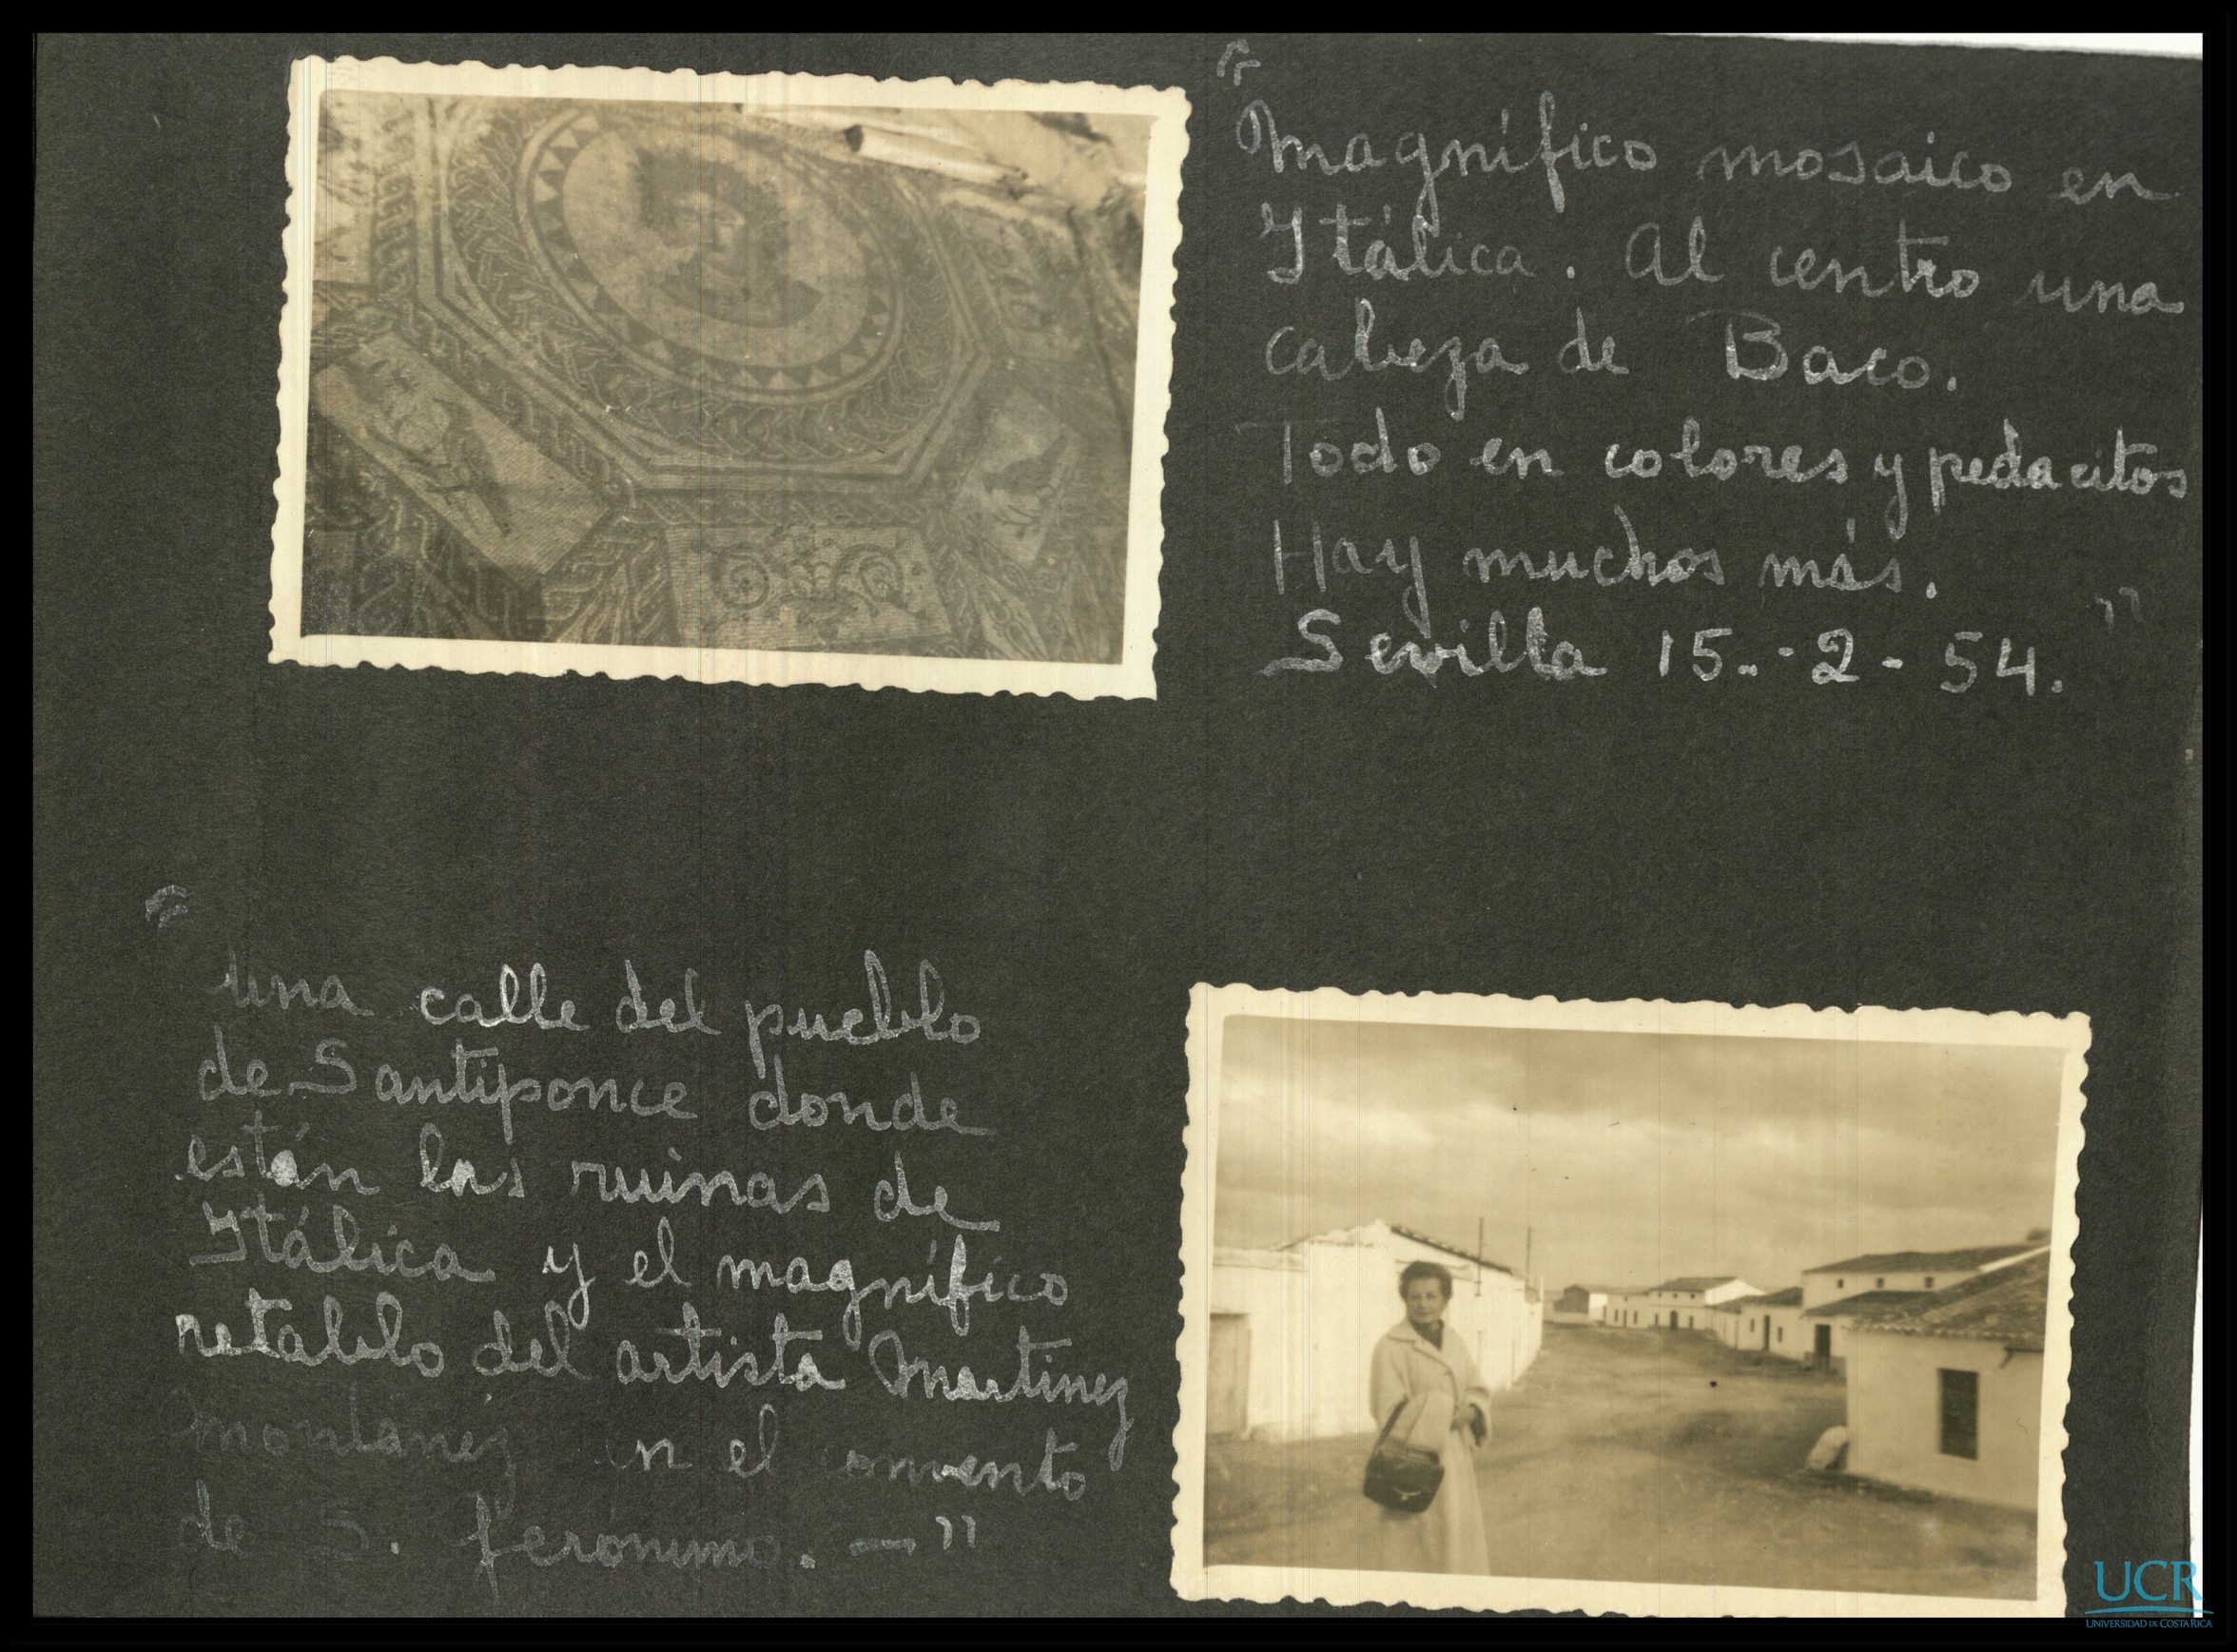 "
Magnífico mosaico en
Itálica. Al centro una
cabeza de Baco.
Todo en colores y pedacitos
Hay muchos más.
Sevilla 15.-2-54."
"
Una calle del pueblo
de Santiponce donde
están las ruinas de
Itálica y el magnífico
retablo del artista Martinez
Montánez en el convento
de S. Jerónimo.—"
UCR
UNIVERSIDAD DE COSTA RICA